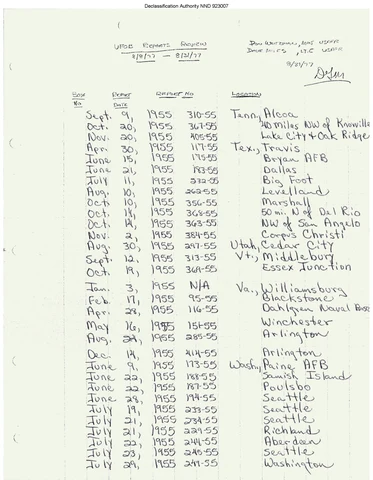 Declassification Authority NND 923007
UFOB REPORTS REVIEW
8/8/77 — 8/21/77
8/21/77
BOX No. REPORT DATE REPORT NO LOCATION
Sept. 9, 1955 310-55 Tenn., Alcoa
Oct. 20, 1955 367-55 40 Miles NW of Knoxville
Nov. 20, 1955 405-55 Lake City & Oak Ridge
Apr. 30, 1955 117-55 Tex., Travis
June 15, 1955 175-55 Bryan AFB
June 21, 1955 183-55 Dallas
July 11, 1955 232-55 Big Foot
Aug. 10, 1955 262-55 Levelland
Oct. 10, 1955 356-55 Marshall
Oct. 18, 1955 368-55 50 mi. N of Del Rio
Oct. 14, 1955 363-55 NW of San Angelo
Nov. 2, 1955 384-55 Corpus Christi
Aug. 30, 1955 297-55 Utah, Cedar City
Sept. 12, 1955 313-55 Vt., Middlebury
Oct. 19, 1955 364-55 Essex Junction
Jan. 3, 1955 N/A Va., Williamsburg
Feb. 17, 1955 95-55 Blackstone
Apr. 28, 1955 116-55 Dahlgren Naval Base
May 16, 1955 151-55 Winchester
Aug. 24, 1955 285-55 Arlington
Dec. 14, 1955 414-55 Arlington
June 9, 1955 173-55 Wash., Paine AFB
June 22, 1955 188-55 Samish Island
June 22, 1955 187-55 Poulsbo
June 28, 1955 194-55 Seattle
July 19, 1955 233-55 Seattle
July 21, 1955 234-55 Seattle
July 21, 1955 229-55 Richland
July 22, 1955 244-55 Aberdeen
July 23, 1955 245-55 Seattle
July 29, 1955 247-55 Washington